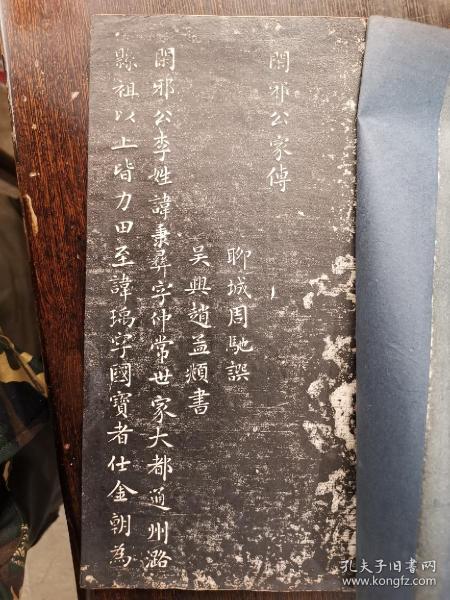 閑邪公家傳
聊城周馳譔
吳興趙孟頫書
閑邪公李姓諱秉彞字仲常世家大都通州潞
縣祖以上皆力田至諱瑀字國寶者仕金朝為
孔夫子旧书网
www.kongfz.com